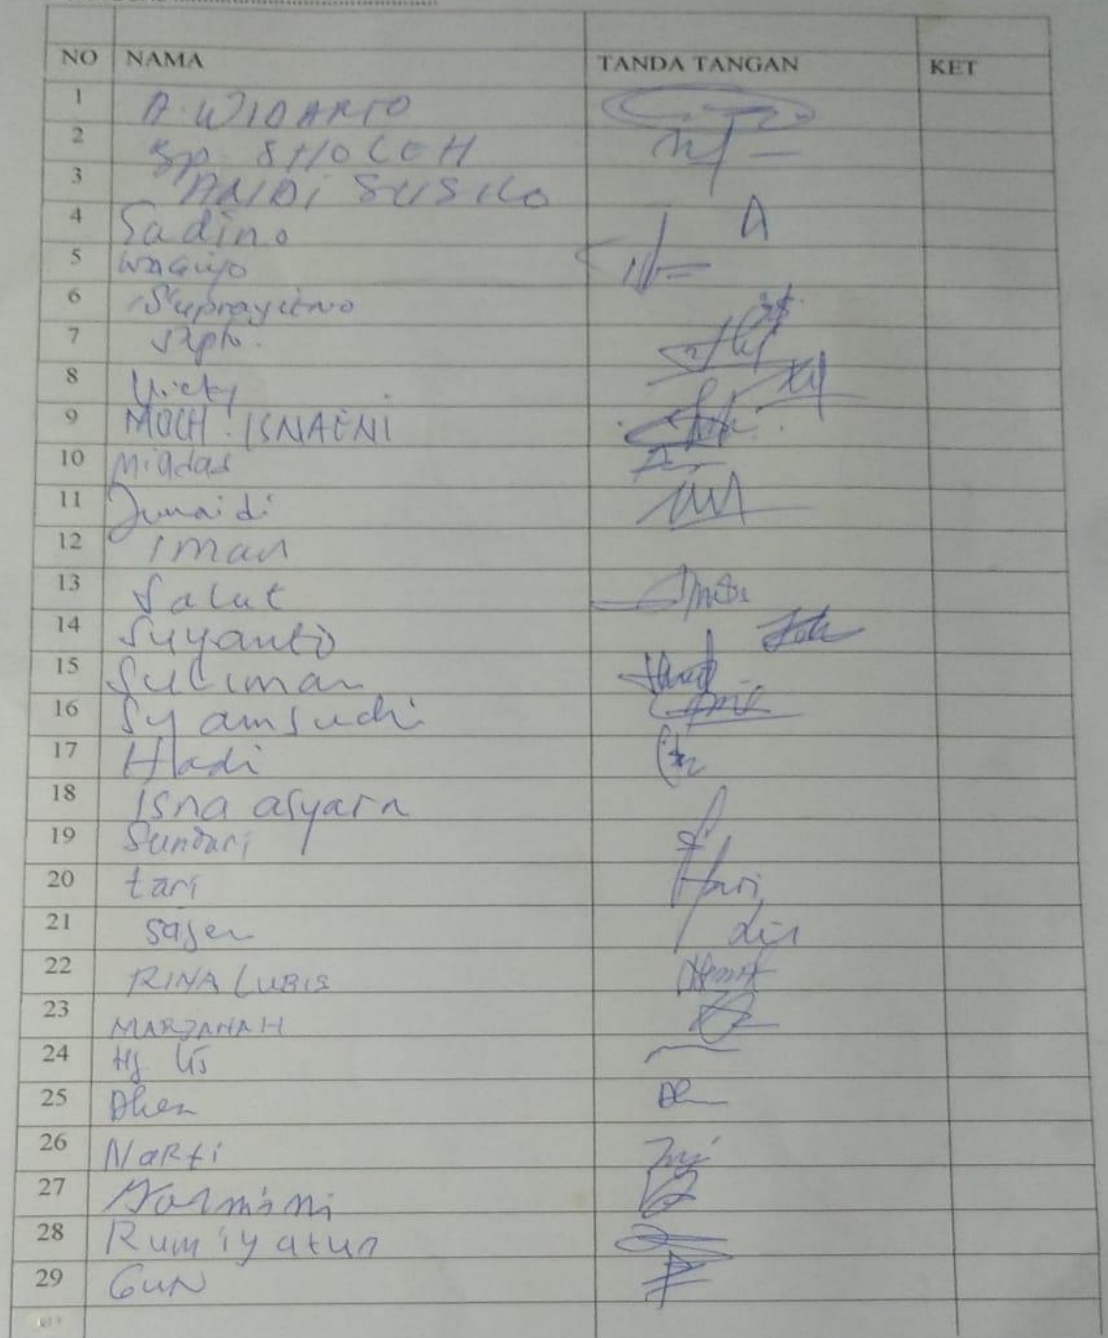 NO NAMA TANDA TANGAN KET
1 A. WIDARTO
2 Bp. SHOLEH
3 ANDI SUSILO
4 Sadino
5 WAGiyo
6 Suprayitno
7 Sapto.
8 Vicky
9 MOCH. ISNAENI
10 Miadas
11 Junaidi
12 Iman
13 Salut
14 Suyanto
15 Suliman
16 Syamsudi
17 Hadi
18 Isna asyarn
19 Sundari
20 tari
21 Sajen
22 RINA LUBIS
23 MARJANAH
24 Hj. Iis
25 Dhen
26 NaRti
27
28 Rumiyatun
29 GUN